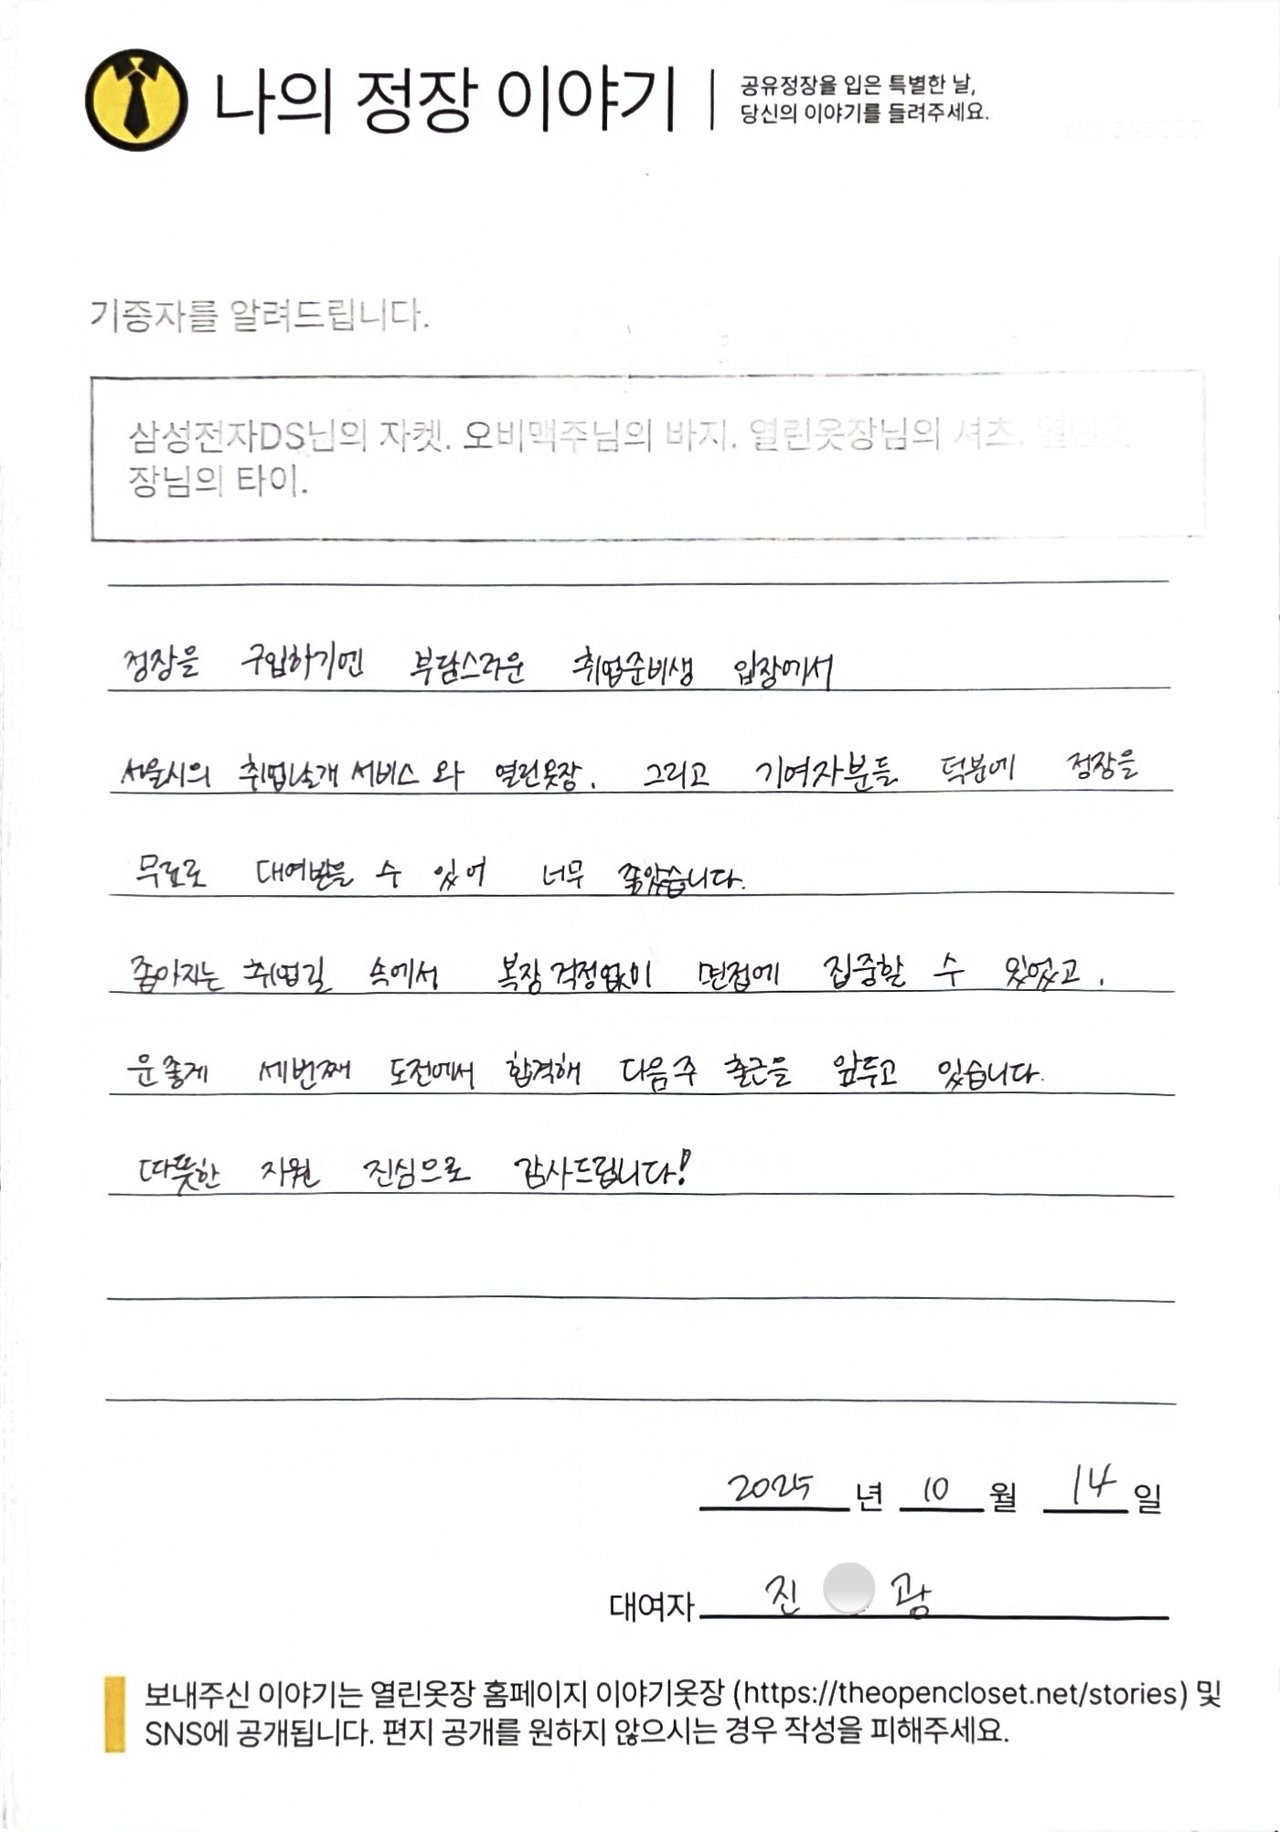 나의 정장 이야기
공유정장을 입은 특별한 날,
당신의 이야기를 들려주세요.
기증자를 알려드립니다.
삼성전자DS님의 자켓. 오비맥주님의 바지. 열린옷장님의 셔츠. 열린옷
장님의 타이.
정장을 구입하기엔 부담스러운 취업준비생 입장에서
서울시의 취업날개 서비스와 열린옷장, 그리고 기여자분들 덕분에 정장을
무료로 대여받을 수 있어 너무 좋았습니다.
좁아지는 취업길 속에서 복장 걱정없이 면접에 집중할 수 있었고,
운좋게 세번째 도전에서 합격해 다음주 출근을 앞두고 있습니다.
따뜻한 지원 진심으로 감사드립니다!
2025 년 10 월 14 일
대여자 진 광
보내주신 이야기는 열린옷장 홈페이지 이야기옷장 (https://theopencloset.net/stories) 및
SNS에 공개됩니다. 편지 공개를 원하지 않으시는 경우 작성을 피해주세요.